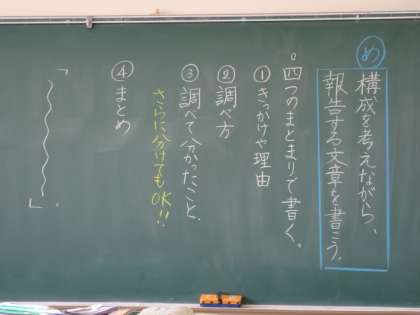 め
構成を考えながら、
報告する文章を書こう。
。四つのまとまりで書く。
①きっかけや理由
②調べ方
③調べて分かったこと
さらに分けてもOK!!
④まとめ
「 」。